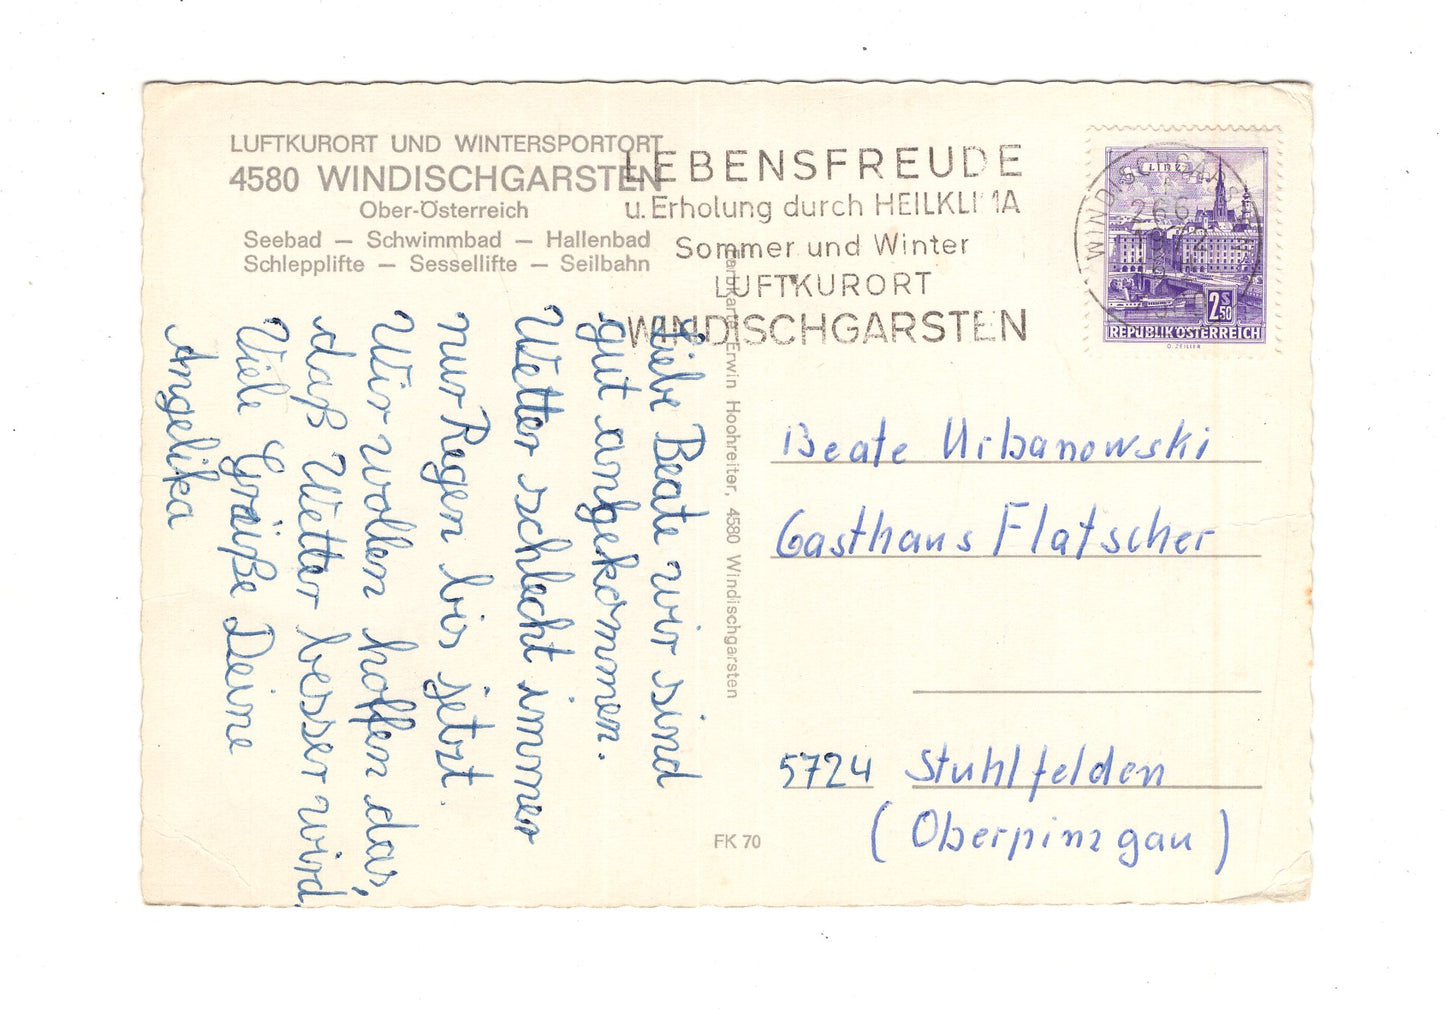 LUFTKURORT UND WINTERSPORTORT
4580 WINDISCHGARSTEN
Ober-Österreich
Seebad — Schwimmbad — Hallenbad
Schlepplifte — Sessellifte — Seilbahn
LEBENSFREUDE
u. Erholung durch HEILKLIMA
Sommer und Winter
LUFTKURORT
WINDISCHGARSTEN
WINDISCHGARSTEN
26.6.
1972
LINZ
2 S 50
REPUBLIK ÖSTERREICH
O. ZEILLER
Liebe Beate wir sind
gut angekommen.
Wetter schlecht immer
nur Regen bis jetzt.
Wir wollen hoffen das,
daß Wetter besser wird,
Viele Grüße Deine
Angelika
Farbkarte Erwin Hochreiter, 4580 Windischgarsten
Beate Urbanowski
Gasthaus Flatscher
5724 Stuhlfelden
(Oberpinzgau)
FK 70